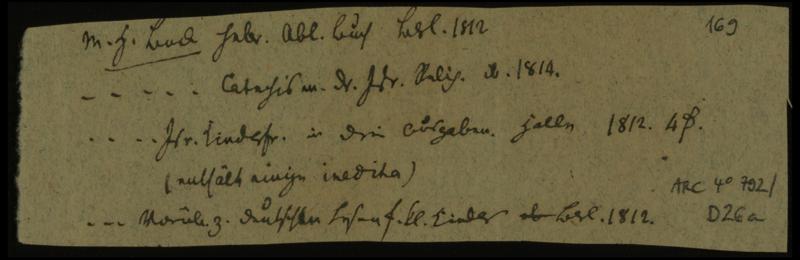 M. H. Bock hebr. Abc. Buch Berl. 1812 169
_ _ _ _ _ Catechism. dr. Isr. Relig. do. 1814.
_ _ _ _ Isr. Kinderfr. in drei Ausgaben. Halle 1812. 4
(enthält einige inedita)
ARC 4º 792/
_ _ _ Vorüb. z. deutschen Lesen f. kl. Kinder Berl. 1812. D26a